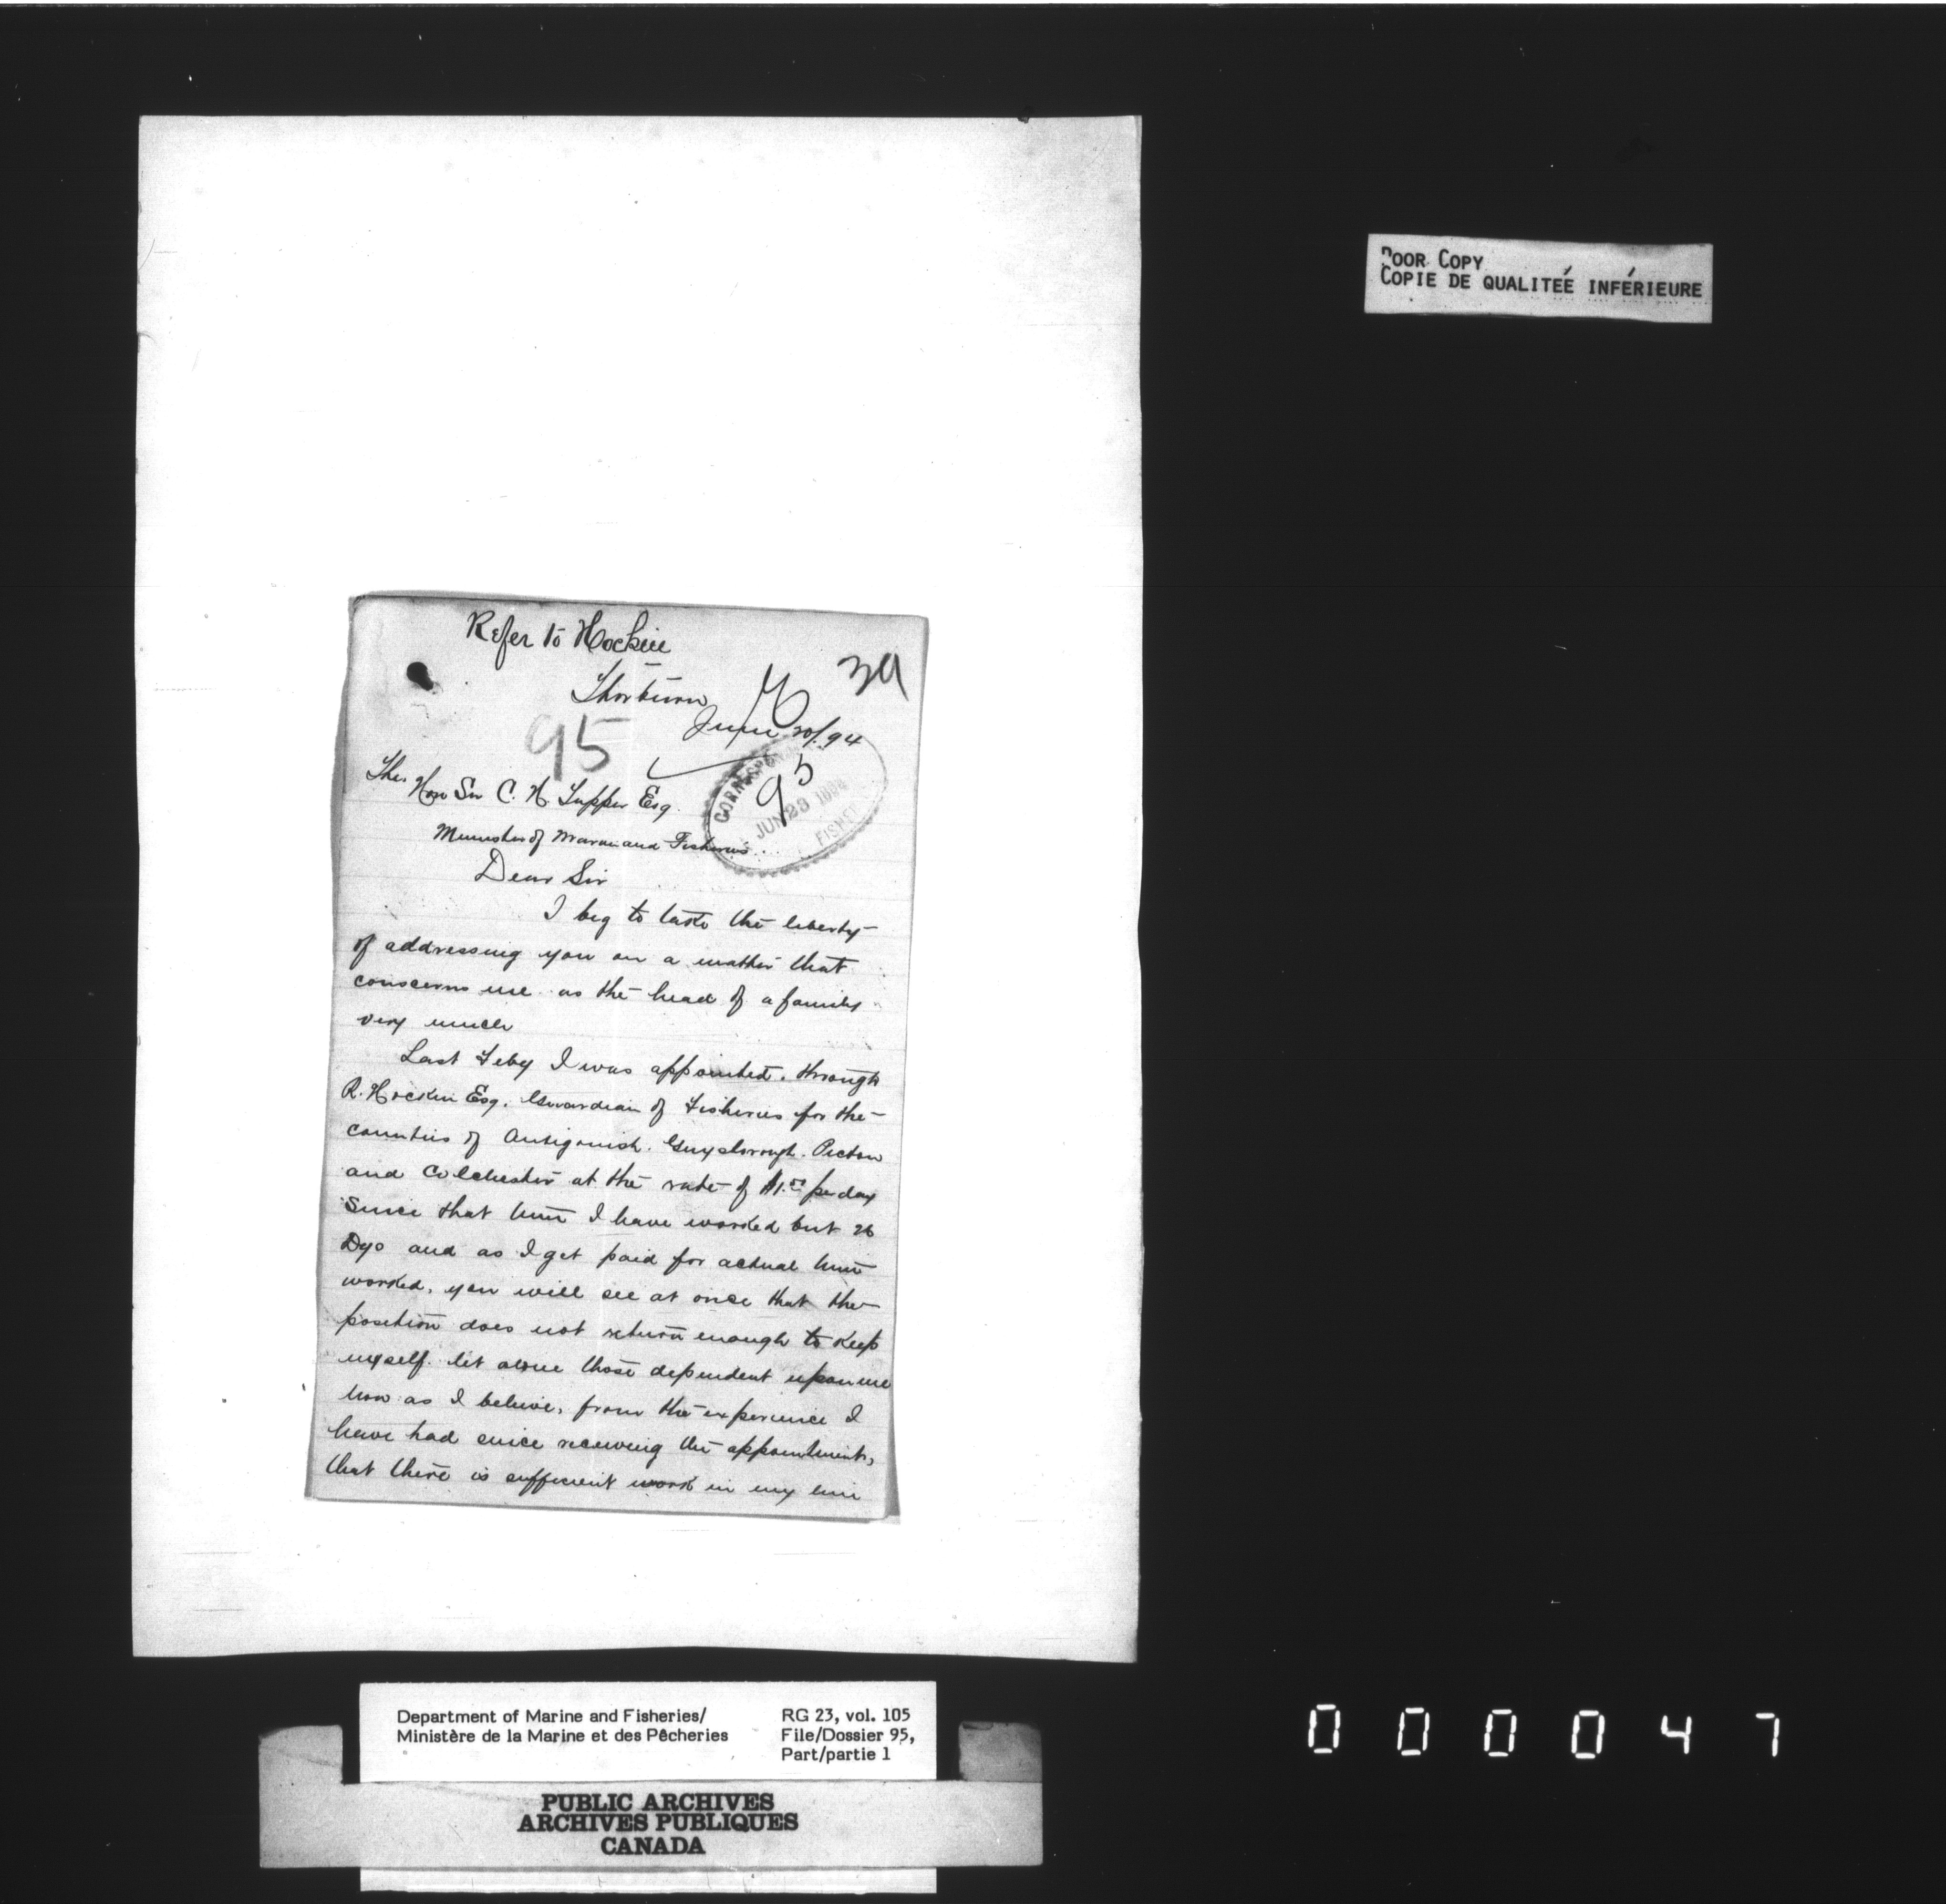 POOR COPY
COPIE DE QUALITÉE INFÉRIEURE
Refer to Hockin
39
Thorburn
June 20/94
95
The Hon Sir C. H. Tupper Esq.
95
JUN 23 1894
Minister of Marine and Fisheries
Dear Sir
I beg to take the liberty
of addressing you on a matter that
conscerns me as the head of a family
very much
Last Feby I was appointed. through
R. Hockin Esq. Guardian of Fisheries for the
counties of Antigonish. Guysborough. Pictou
and Colchester at the rate of $1.50 per day
Since that time I have worked but 26
Dys and as I get paid for actual time
worked, you will see at once that the
position does not return enough to keep
myself. let alone those dependent upon me
Now as I believe, from the experience I
have had since receiving the appointment,
that there is sufficient work in my line
Department of Marine and Fisheries/
Ministère de la Marine et des Pêcheries
RG 23, vol. 105
File/Dossier 95,
Part/partie 1
PUBLIC ARCHIVES
ARCHIVES PUBLIQUES
CANADA
000047